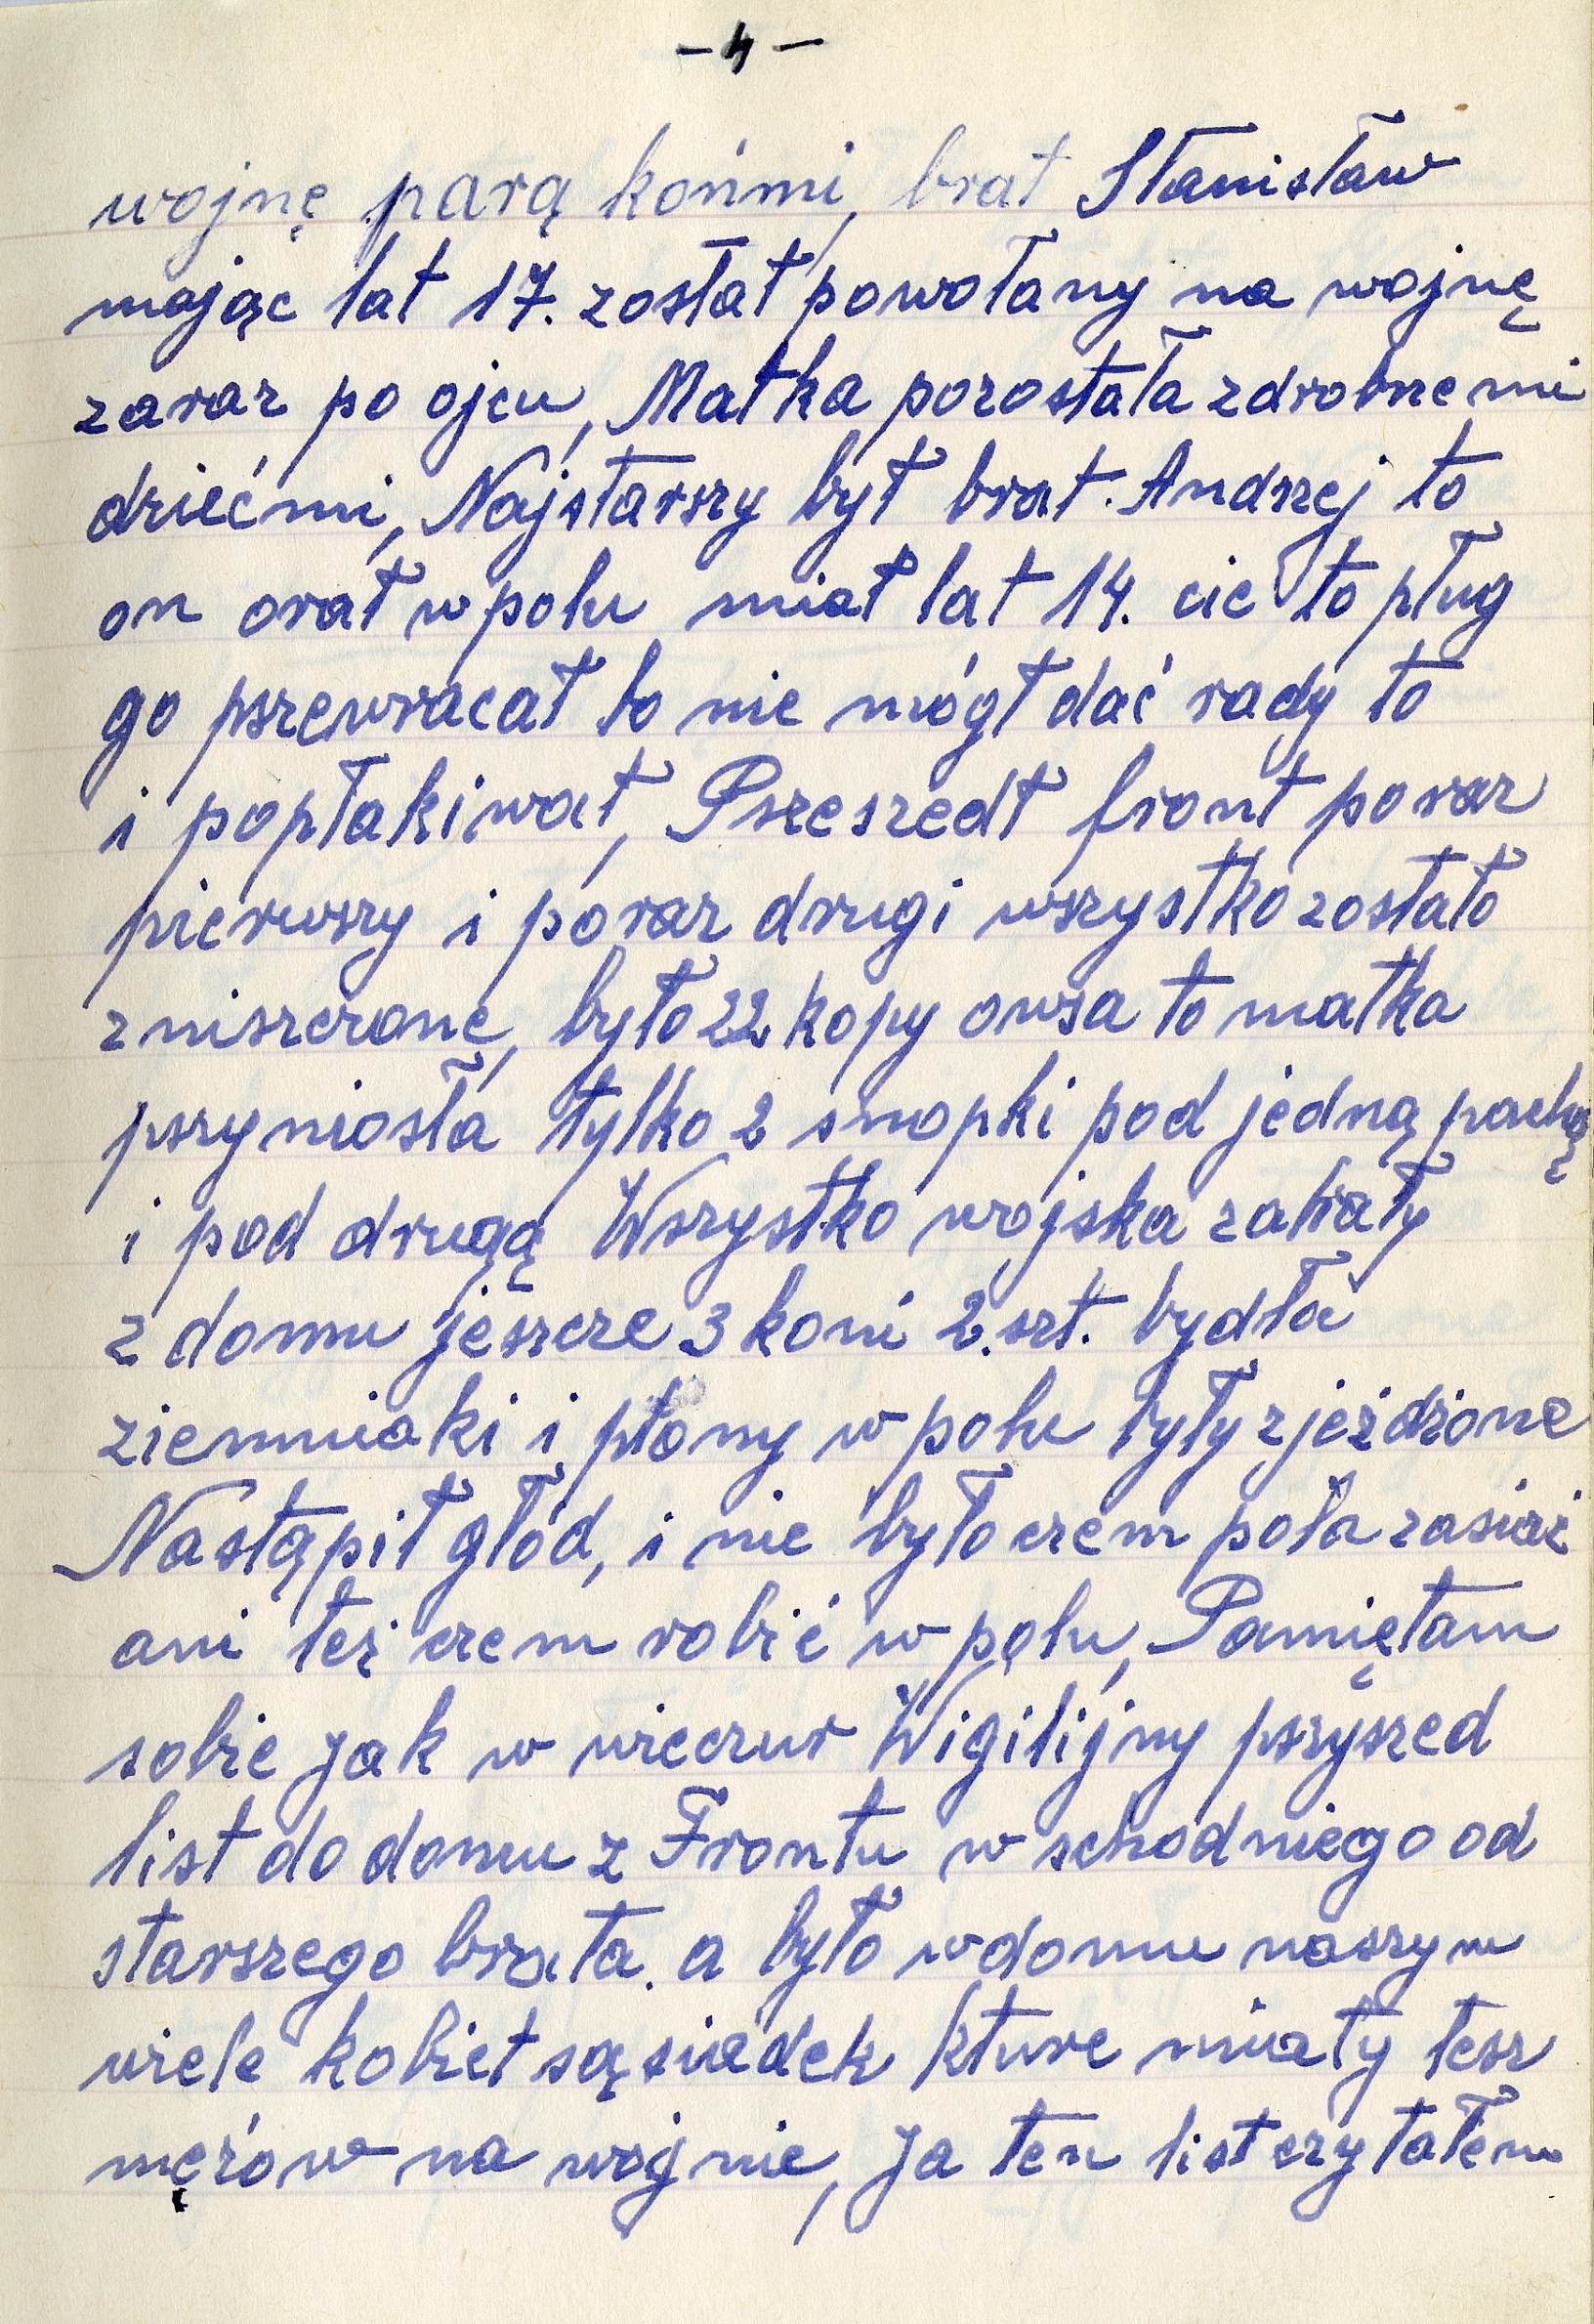 - 4 -
wojnę parą końmi, brat Stanisław
mając lat 17. został powołany na wojnę
zaraz po ojcu, Matka pozostała zdrobnemi
dziećmi, Najstarszy był brat. Andszej to
on orał w polu miał lat 14. to pług
go pszewracał bo nie mógł dać rady to
i popłakiwał, Pszeszedł front poraz
pierwszy i poraz drugi wszystko zostało
zniszczone, było 22 kopy owsa to matka
pszyniosła tylko 2 snopki pod jedną pachą
i pod drugą Wszystko wojska zabrały
z domu jeszcze 3 koni 2. szt. bydła
ziemniaki i plony w polu były zjeżdżone
Nastąpił głód, i nie było czem pola zasiać
ani też czem robić w polu, Pamiętam
sobie jak w wieczur Wigilijny pszyszed
list do domu z Frontu w schodniego od
starszego brata. a było w domu naszym
wiele kobiet sąsiadek kture miały tesz
mężów na wojnie, Ja ten list czytałem